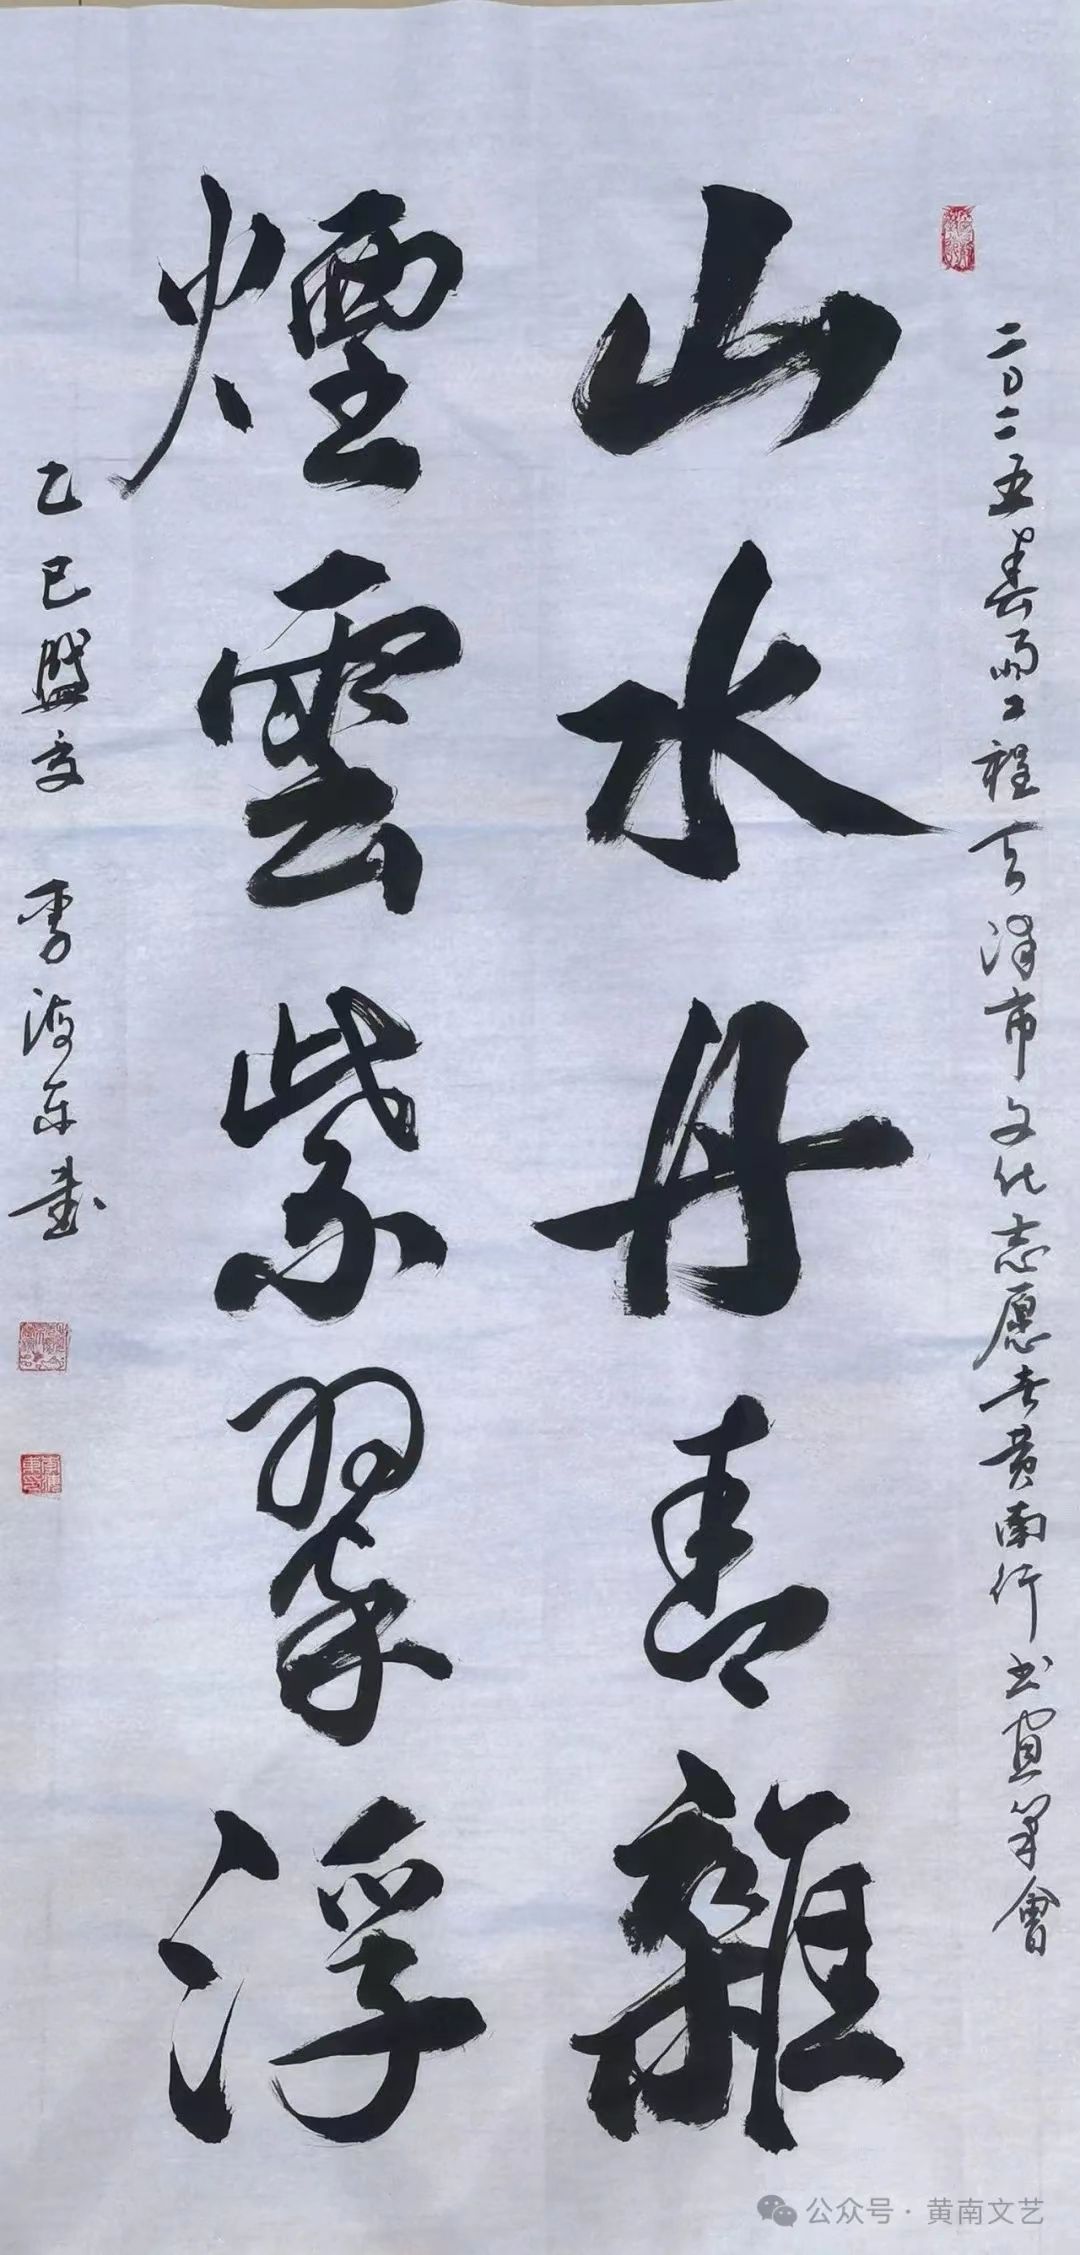 二〇二五春雨工程天津市文化志愿者黄南行书画笔会
山水丹青雜
煙雲紫翠浮
乙巳盛夏 李波东书
公众号·黄南文艺